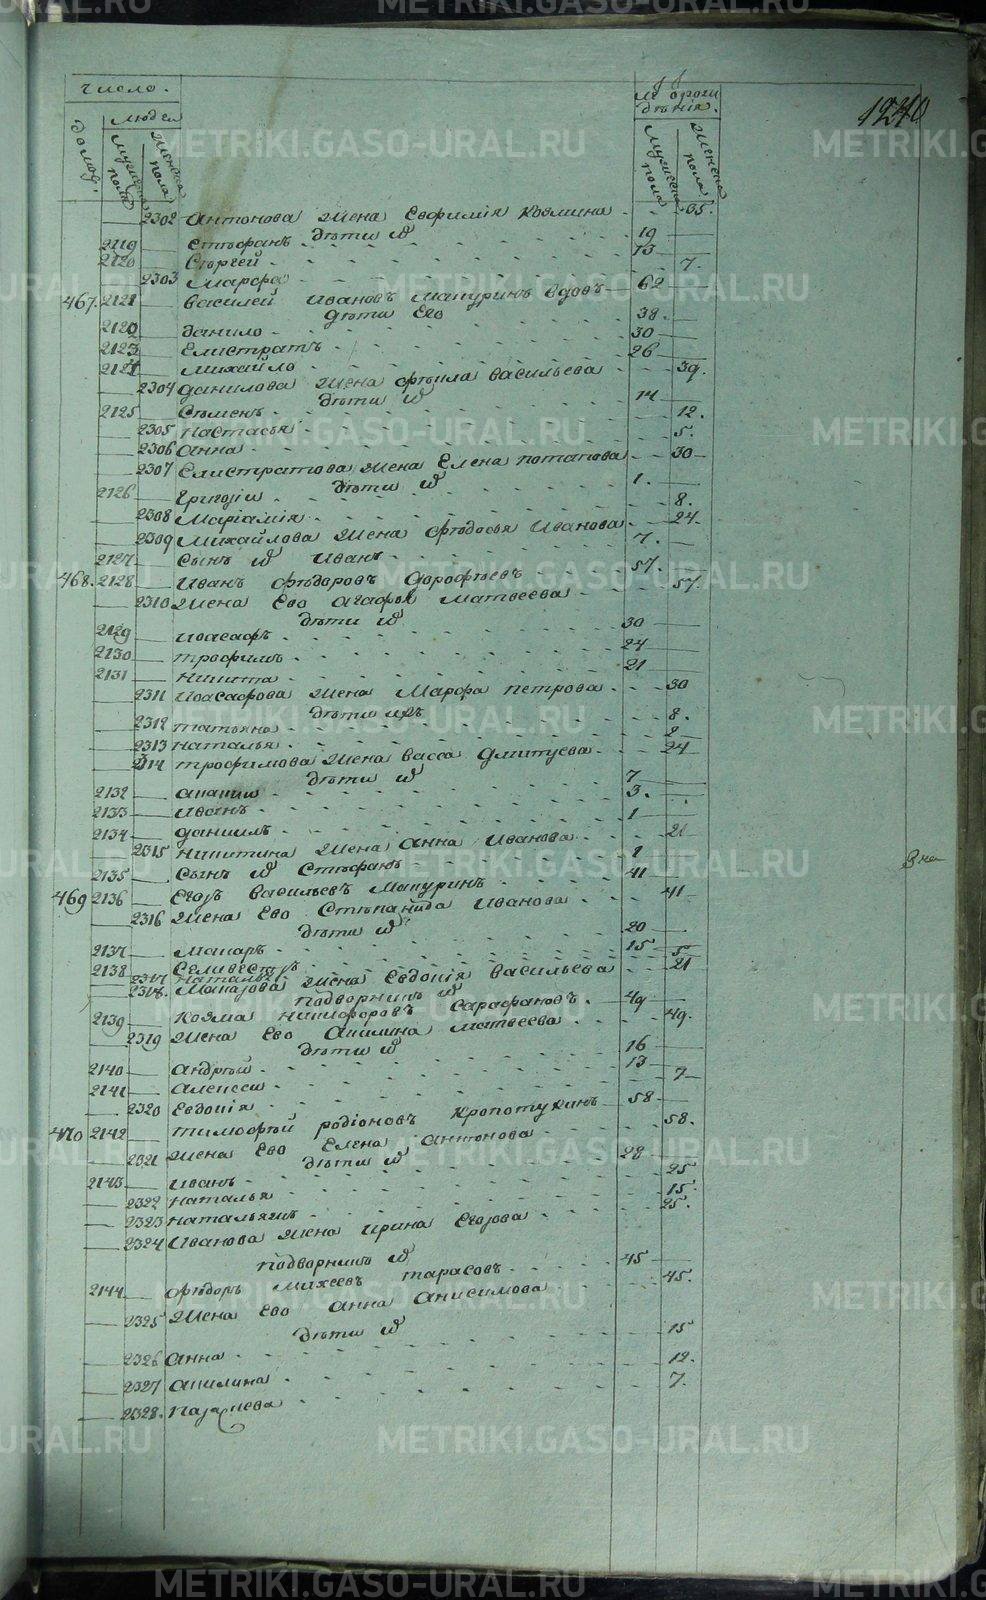 число.
людей
домов.
мужеска пола
женска пола
дѣнія.
мужеска пола
женска пола
1240
2302 Антонова жена Евфимія Козмина 35.
дѣти и҃
2119 Стефанъ 19
2120 Сергей 13
2303 Марфа 7.
467. 2121 Василей Ивановъ Мачуринъ вдовъ 62
дѣти Его
2122 Данило 38.
2123 Елистратъ 30
2124 Михайло 26
2304 Данилова жена Фекла Васильева 39.
дѣти и҃
2125 Семенъ 14
2305 Настасья 12.
2306 Анна 5.
2307 Елистратова жена Елена Потапова 30
дѣти и҃
2126 Григорій 1.
2308 Маріамія 8.
2309 Михайлова жена Федосья Иванова 24
2127 Сынъ и҃ Иванъ 7.
468. 2128 Иванъ Федоровъ Дорофеевъ 57.
2310 Жена Ево Агафья Матвеева 57.
дѣти и҃
2129 Иоасафъ 30
2130 Трофимъ 24
2131 Никита 21
2311 Иоасафова жена Марфа Петрова 30
дѣти ихъ
2312 Татьяна 8.
2313 Наталья 2
2314 Трофимова жена Васса Дмитриева 24
дѣти и҃
2132 Ананій 7
2133 Иванъ 3.
2134 Даниилъ 1
2315 Никитина жена Анна Иванова 21
2135 Сынъ и҃ Стефанъ 1
469 2136 Егоръ Васильевъ Мачуринъ 41
2316 Жена Ево Степанида Иванова 41
дѣти и҃
2137 Макаръ 20
2138 Селивестръ 15
2317 Наталья 5
2318. Макарова жена Евдокія Васильева 21
подворники и҃
2139 Козма Никифоровъ Сарафановъ 49
2319 Жена Ево Акилина Матвеева 49.
дѣти и҃
2140 Андрей 16
2141 Алексей 13
2320 Евдокія 7
470 2142 Тимофей Родіоновъ Кропотухинъ 58
2321 Жена Ево Елена Антонова 58.
дѣти и҃
2143 Иванъ 28
2322 Наталья 25
2323 Наталья жъ 15.
2324 Иванова жена Ирина Егорова 25.
подворники и҃
2144 Федоръ Михеевъ Тарасовъ 45
2325 Жена Ево Анна Анисимова 45.
дѣти и҃
2326 Анна 15
2327 Акилина 12.
2328. Параскева 7.